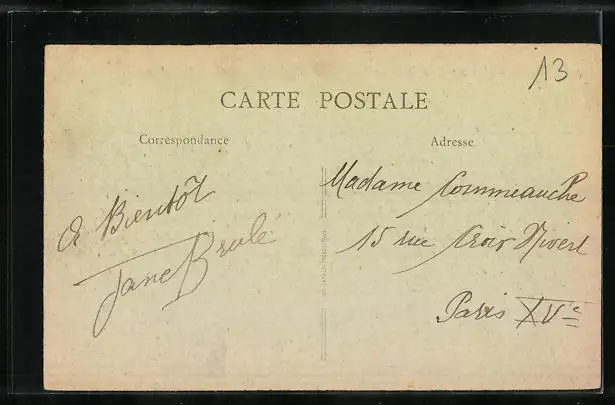 13
CARTE POSTALE
Correspondance
Adresse
A Bientôt
Jane Brulé
Madame Commeauche
15 rue Croix Nivert
Paris XVe